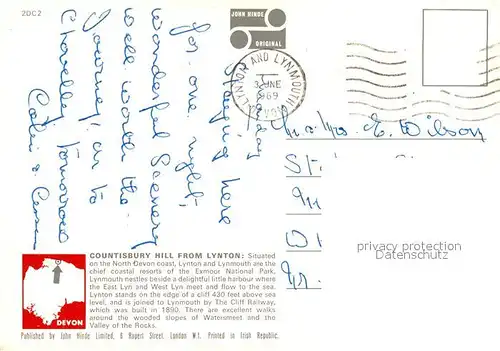 2DC2
JOHN HINDE
ORIGINAL
LYNTON AND LYNMOUTH
3 JUNE
1969
Staying here
for one night,
wonderful Scenery
well worth the
Journey, on to
tomorrow
Colin &
Mr & Mrs E. Wilson
St
W
privacy protection
Datenschutz
DEVON
COUNTISBURY HILL FROM LYNTON: Situated
on the North Devon coast, Lynton and Lynmouth are the
chief coastal resorts of the Exmoor National Park,
Lynmouth nestles beside a delightful little harbour where
the East Lyn and West Lyn meet and flow to the sea.
Lynton stands on the edge of a cliff 430 feet above sea
level, and is joined to Lynmouth by The Cliff Railway,
which was built in 1890. There are excellent walks
around the wooded slopes of Watersmeet and the
Valley of the Rocks.
Published by John Hinde Limited, 6 Rupert Street, London W.1. Printed in Irish Republic.